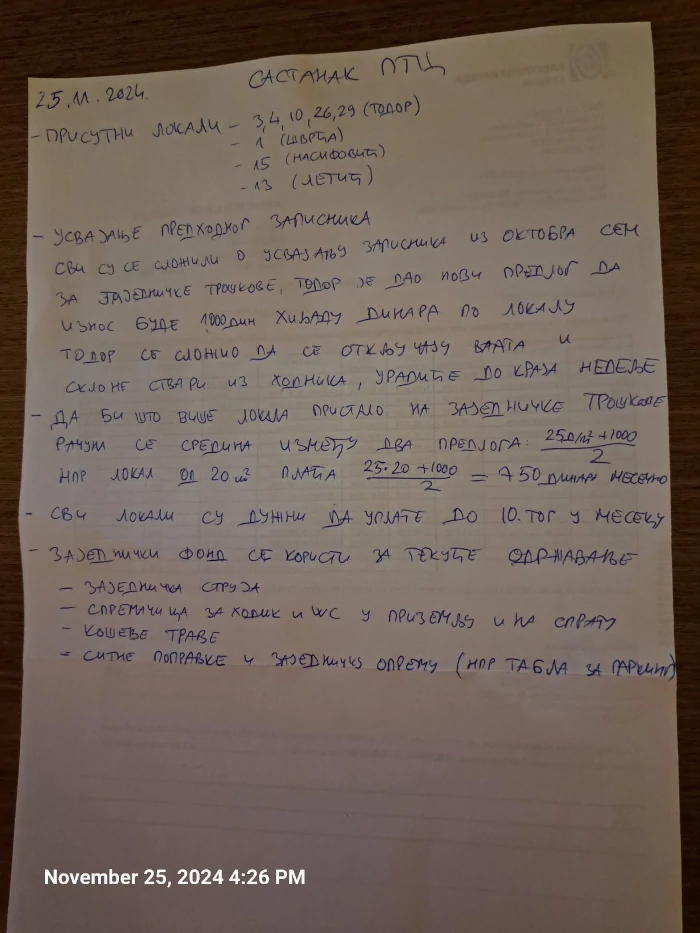 САСТАНАК ПТЦ
25.11.2024.
- ПРИСУТНИ ЛОКАЛИ - 3,4,10,26,29 (ТОДОР)
- 1 (ШВРЋА)
- 15 (НАСИФОВИЋ)
- 13 (ЛЕТИЋ)
- УСВАЈАЊЕ ПРЕДХОДНОГ ЗАПИСНИКА
СВИ СУ СЕ СЛОЖИЛИ О УСВАЈАЊУ ЗАПИСНИКА ИЗ ОКТОБРА СЕМ
ЗА ЗАЈЕДНИЧКЕ ТРОШКОВЕ, ТОДОР ЈЕ ДАО НОВИ ПРЕДЛОГ ДА
ИЗНОС БУДЕ 1000 ДИН ХИЉАДУ ДИНАРА ПО ЛОКАЛУ
ТОДОР СЕ СЛОЖИО ДА СЕ ОТКЉУЧАЈУ ВРАТА И
СКЛОНЕ СТВАРИ ИЗ ХОДНИКА, УРАДИЋЕ ДО КРАЈА НЕДЕЉЕ
- ДА БИ ШТО ВИШЕ ЛОКАЛА ПРИСТАЛО НА ЗАЈЕДНИЧКЕ ТРОШКОВЕ
РАЧУНА СЕ СРЕДИНА ИЗМЕЂУ ДВА ПРЕДЛОГА: (25D/m² + 1000)/2
НПР ЛОКАЛ ОД 20 m² ПЛАЋА (25·20 + 1000)/2 = 750 ДИНАРА МЕСЕЧНО
- СВИ ЛОКАЛИ СУ ДУЖНИ ДА УПЛАТЕ ДО 10. ТОГ У МЕСЕЦУ
- ЗАЈЕДНИЧКИ ФОНД СЕ КОРИСТИ ЗА ТЕКУЋЕ ОДРЖАВАЊЕ
- ЗАЈЕДНИЧКА СТРУЈА
- СПРЕМАЧИЦА ЗА ХОДНИК И WC У ПРИЗЕМЉУ И НА СПРАТУ
- КОШЕЊЕ ТРАВЕ
- СИТНЕ ПОПРАВКЕ И ЗАЈЕДНИЧКУ ОПРЕМУ (НПР ТАБЛА ЗА ПАРКИНГ)
November 25, 2024 4:26 PM